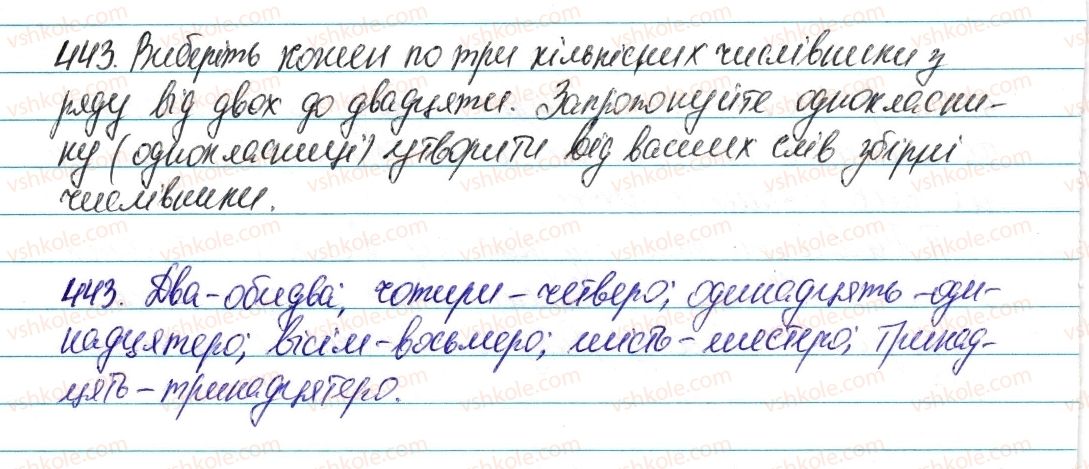 443. Виберіть кожен по три кількісних числівники з
ряду від двох до двадцяти. Запропонуйте однокласни-
ку (однокласниці) утворити від ваших слів збірні
числівники.
443. Два-обидва; чотири-четверо; одинадцять-оди-
надцятеро; вісім-восьмеро; шість-шестеро; Тринад-
цять-тринадцятеро.